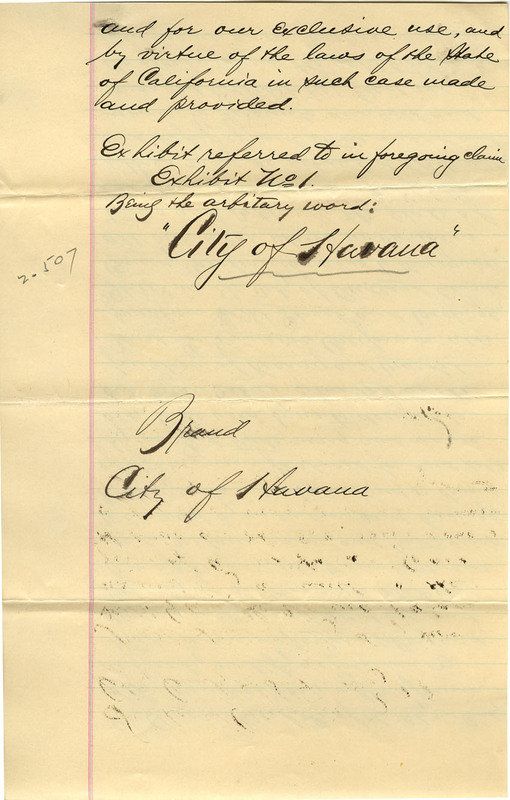 and for our exclusive use, and
by virtue of the laws of the State
of California in such case made
and provided.
Exhibit referred to in foregoing claim
Exhibit No 1.
Being the arbitary word:
"City of Havana"
2-507
Brand
City of Havana